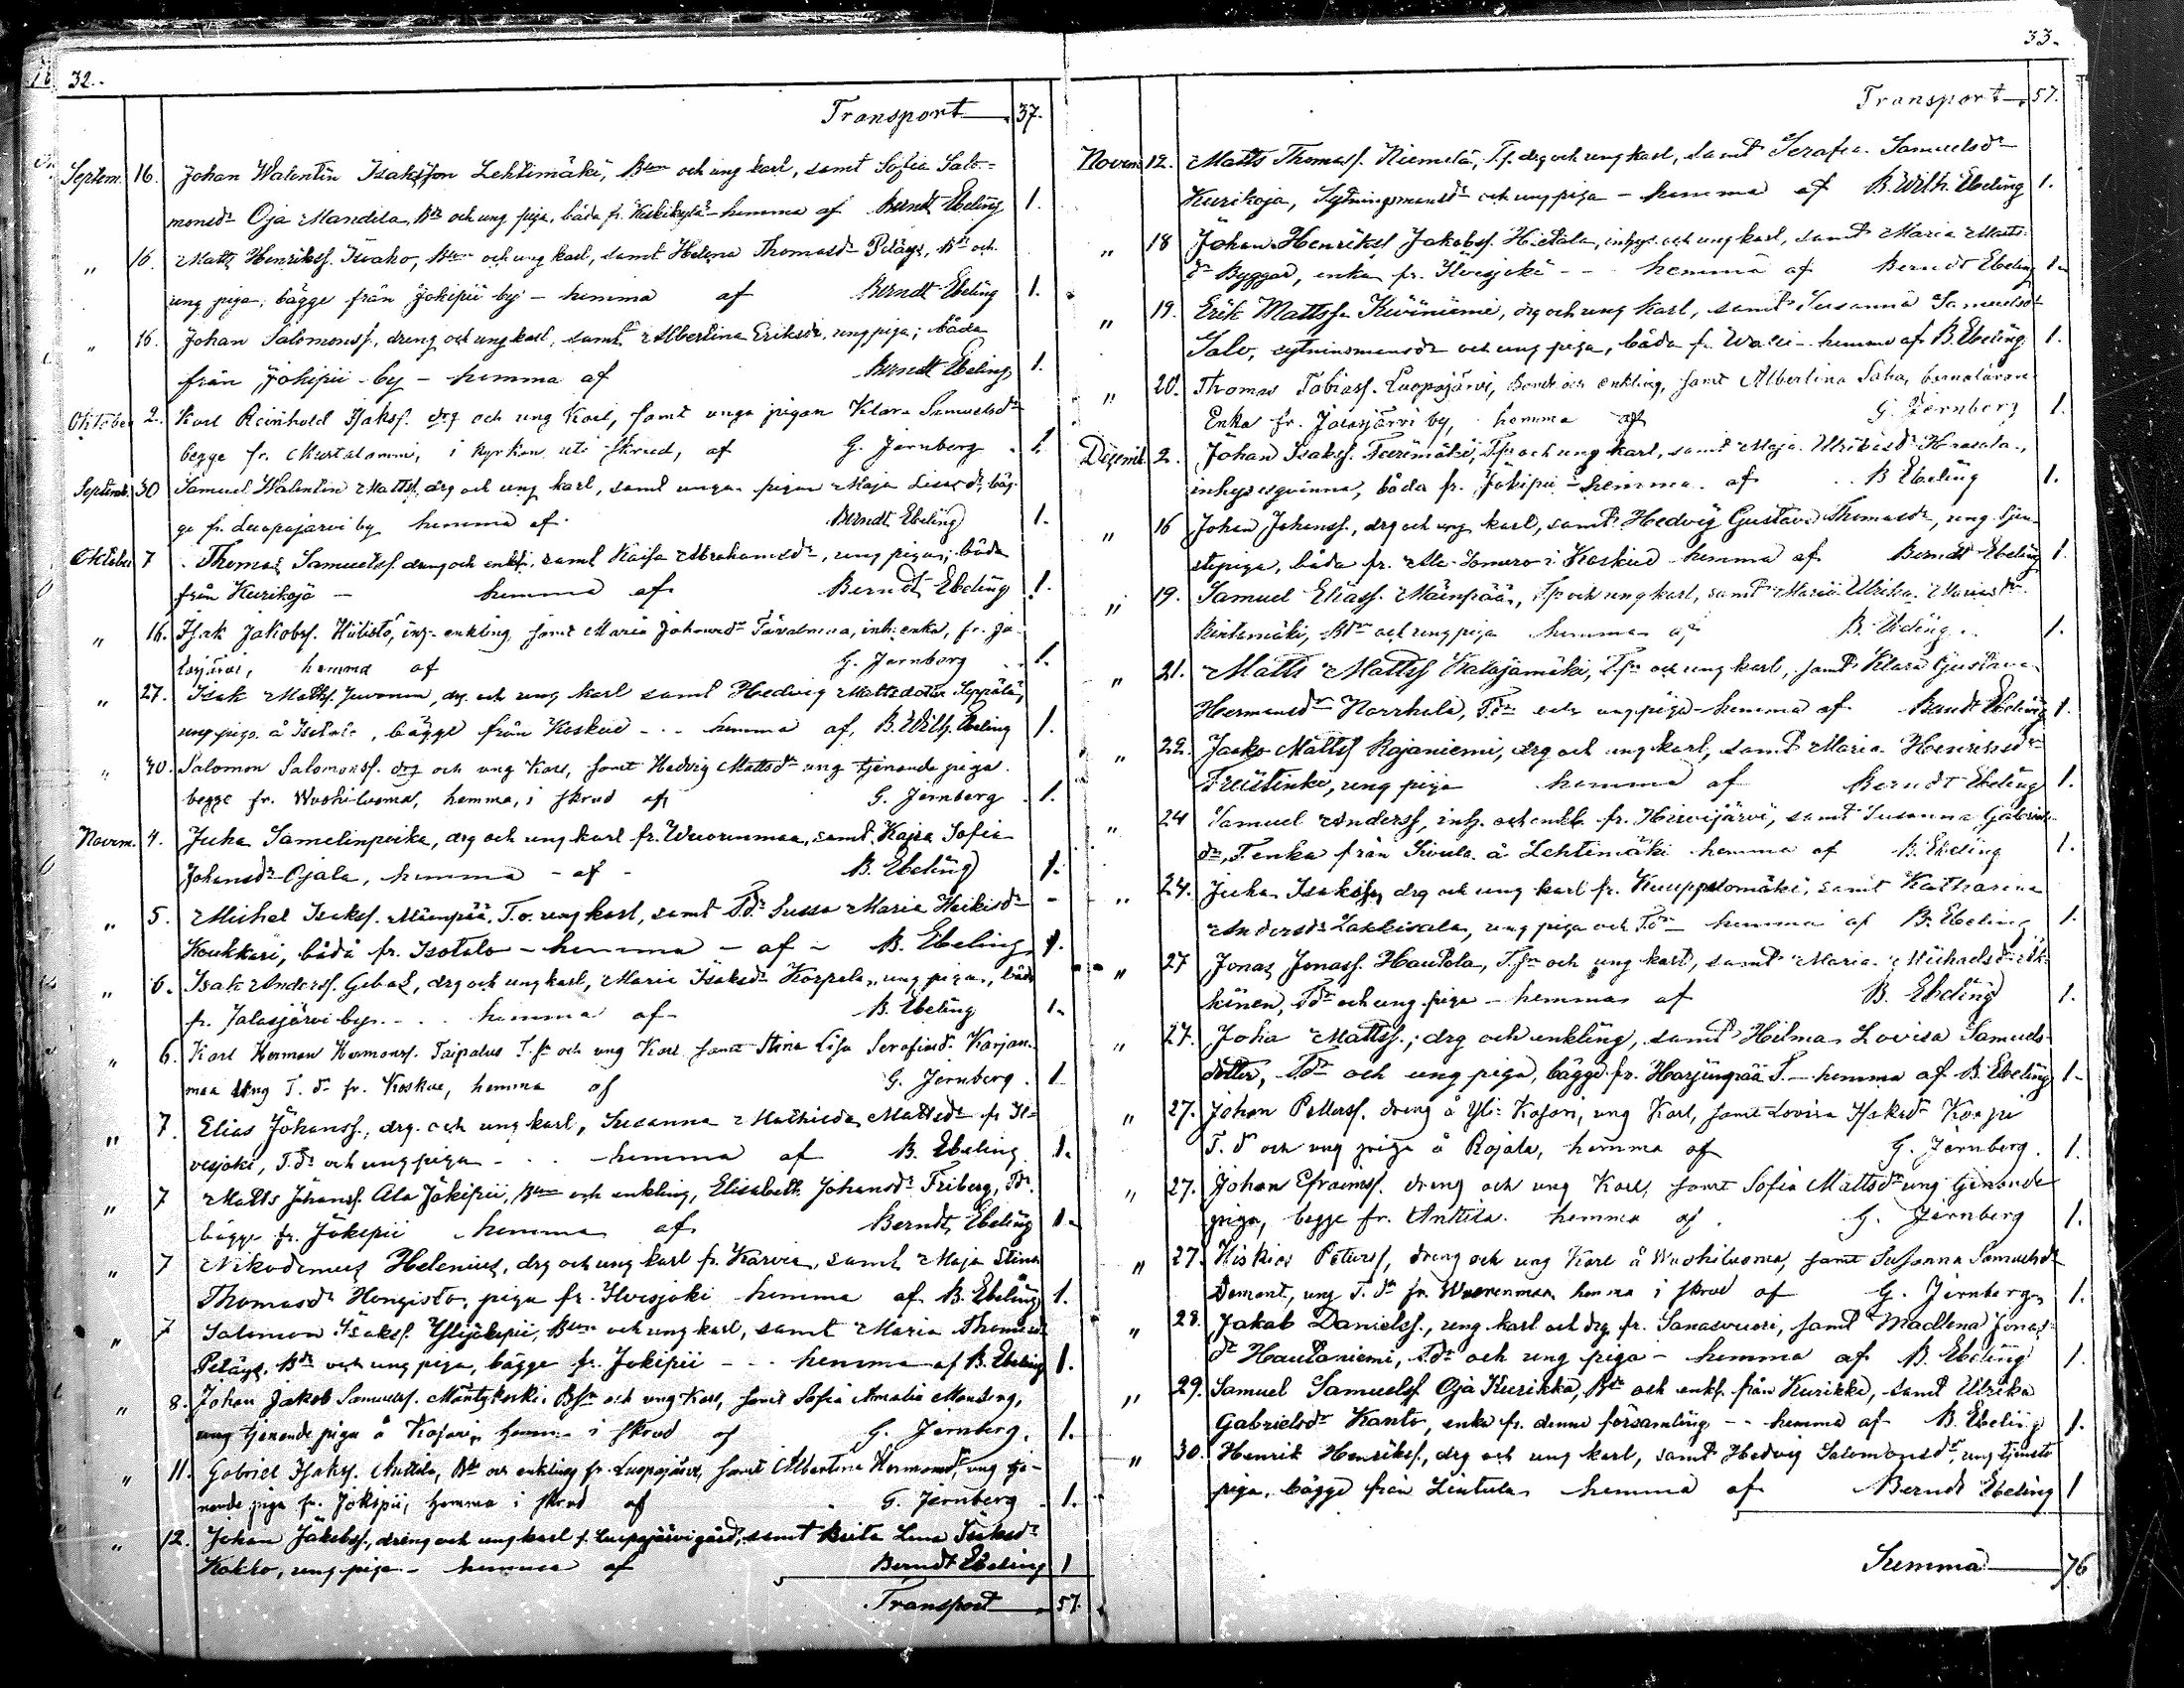 32.
Transport 37.
Septem. 16. Johan Walentin Isaksson Lehtimäki, Bson och ung karl, samt Sofia Salo=
monsdr Oja Mandila, Bdr och ung piga, båda fr. Keskikylä - hemma af Berndt Ebeling 1.
" 16. Matts Henrikss. Iivako, Bson och ung karl, samt Helena Thomasdr Peläys, Bdr och
ung piga, bägge från Jokipii by - hemma af Berndt Ebeling 1.
" 16. Johan Salomonss., dreng och ung karl, samt Albertina Eriksdr, ung piga; båda
från Jokipii by - hemma af Berndt Ebeling 1.
Oktober 2. Karl Reinhold Isakss. drg och ung Karl, samt unga pigan Klara Samuelsdr
begge fr. Mustalammi, i kyrkan uti skrud, af G. Jernberg 1.
Septemb. 30 Samuel Walentin Mattss. drg och ung karl, samt unga pigan Maja Lisa dr, bäg-
ge fr. Luopajärvi by hemma af Berndt Ebeling 1.
Oktober 7 Thomas Samuelss. dreng och enkl., samt Kaisa Abrahamsdr, ung piga; båda
från Kurikoja - hemma af Berndt Ebeling 1.
" 16. Isak Jakobss. Hiilistö, inh. enkling, samt Maria Johansdr inh. enka, fr. Ja-
lasjärvi, hemma af G. Jernberg 1.
" 27. Isak Mattss. Juvonen, drg. och ung karl samt Hedvig Mattsdotter Seppälä,
ung piga å Isotalo, bägge från Koskue - - - hemma af, B. Wilh. Ebeling 1.
" 30. Salomon Salomonss. drg och ung Karl, samt Hedvig Mattsdr ung tjenande piga.
begge fr. Wuohiluoma, hemma, i skrud af G. Jernberg 1.
Novem. 4. Juha Samelinpoika, drg och ung karl fr. Wuorenmaa, samt Kajsa Sofia
Johansdr Ojala, hemma - af - B. Ebeling 1.
" 5. Michel Isakss. Mäenpää, T. o. ung karl, samt T.dr Sussa Maria Heikisdr -
Koukkari, båda fr. Isotalo - hemma - af - B. Ebeling 1.
" 6. Isak Anderss. Gebal, drg och ung karl, Maria Isaksdr Korpela, ung piga, båda
fr. Jalasjärvi by. - . . hemma af B. Ebeling 1.
" 6. Karl Herman Hermanss. Taipalus T.sn och ung Karl samt Stina Lisa Serafiasdr Karjan-
maa ung T. dr fr. Koskue, hemma af G. Jernberg. 1.
" 7. Elias Johanss., drg. och ung karl, Susanna Mathilda Mattsdr fr Il=
vesjoki, T.dr och ung piga - . . - hemma af B. Ebeling. 1.
" 7 Matts Johanss. Ala Jokipii, Bson och enkling, Elisabeth Johansdr Friberg, Tdr.
bägge fr. Jokipii hemma af Berndt Ebeling 1.
" 7 Nikodemus Helenius, drg och ung karl fr. Karvia, samt Maja Stina
Thomasdr Hongisto, piga fr. Ilvesjoki hemma af B. Ebeling 1.
" 7 Salomon Isakss. Ylijokipii, Bson och ung karl, samt Maria Thomasdr
Peläys, Bdr och ung piga, bägge fr. Jokipii - - - hemma af B. Ebeling 1.
" 8. Johan Jakob Samuelss. Mäntykoski, Bsn och ung Karl, samt Sofia Amalia
ung tjenande piga å Kosari, hemma i skrud af G. Jernberg. 1.
" 11. Gabriel Isakss. Anttila, Bdr och enkling fr. Luopajärvi, samt Albertina Hermansdr, ung tje-
nande piga fr. Jokipii, hemma i skrud af G. Jernberg 1.
" 12. Johan Jakobss., dreng och ung karl f. Luopajärvi gård, samt Brita Lena Isaksdr
Kokko, ung piga - hemma af Berndt Ebeling 1
Transport 57.
33.
Transport 57.
Novem. 12. Matts Thomass. Niemelä, T.s. drg och ung karl, samt Serafia Samuelsdr
Kurikoja, Sytningsmansdr och ung piga - hemma af B. Wilh. Ebeling 1.
" 18 Johan Henrikss Jakobss. Hietala, inhys. och ung karl, samt Maria Matts-
dr Byggar, enka fr. Ilvesjoki - - hemma af Berndt Ebeling 1.
" 19. Erik Mattss. Kiviniemi, drg och ung karl, samt Susanna Samuelsdr
Salo, sytninsmansdr och ung piga, båda fr. - hemma af B. Ebeling 1.
" 20. Thomas Tobiass. Luopajärvi, Bonde och enkling, samt Albertina Saha,
Enka fr. Jalasjärvi by, hemma af G. Jernberg 1.
Decemb. 2. Johan Isakss. T.sn och ung karl, samt Maja Ulrikasdr
inhysesqvinna, båda fr. Jokipii - hemma af B Ebeling 1.
" 16 Johan Johanss., drg och ung karl, samt Hedvig Gustava Thomasdr, ung tjen-
stepiga, båda fr. Ala Somero i Koskue hemma af Berndt Ebeling 1.
" 19. Samuel Eliass. Mäenpää, T.sn och ung karl, samt Maria Ulrika Mariasdr
Rintamäki, Bdr och ung piga hemma af B. Ebeling. 1.
" 21. Matts Mattss Katajamäki, T.sn och ung karl, samt Klara Gustava
Hermansdr Norrkila, T.dr och ung piga - hemma af Berndt Ebeling 1.
" 22. Jaako Mattss Rajaniemi, drg och ung karl, samt Maria Henriksdr
ung piga hemma af Berndt Ebeling 1.
" 24 Samuel Anderss, inh. och enkl. fr. Hirvijärvi, samt Susanna Gabriels-
dr, T.enka från Sivula å Lehtimäki hemma af B. Ebeling 1.
" 24. Juha Isakss, drg och ung karl fr. Kuuppalomäki, samt Katharina
Andersdr ung piga och T.dr - hemma af B. Ebeling 1.
" 27 Jonas Jonass. Hautala, T.sn och ung karl, samt Maria Michaelsdr
T.dr och ung piga - hemma af B. Ebeling 1.
" 27. Joha Mattss.; drg och enkling, samt Hilma Lovisa Samuels-
dotter, T.dr och ung piga, bägge fr. Harjunpää T. - hemma af B. Ebeling 1-
" 27. Johan Petterss. dreng å Yli-Kosari, ung Karl, samt Lovisa Isaksdr
T. dr och ung piga å Rojala, hemma af G. Jernberg. 1.
" 27. Johan Efraimss. dreng och ung Karl, samt Sofia Mattsdr ung tjenande
piga, begge fr. Anttila. hemma af G. Jernberg 1.
" 27. Hiskias Peterss, dreng och ung Karl å Wuohiluoma, samt Susanna Samuelsdr
Demant, ung T. dr fr. Wuorenmaa hemma i skrud af G. Jernberg 1.
" 28. Jakob Danielss., ung karl och drg. fr. Sanasvuori, samt Madlena Jonas-
dr Hautaniemi, T.dr och ung piga - hemma af B. Ebeling 1.
" 29. Samuel Samuelss Oja Kurikka, Bdr och enkl. från Kurikka, samt Ulrika
Gabrielsdr Kanto, enka fr. denna församling - - hemma af B. Ebeling 1.
" 30. Henrik Henrikss., drg och ung karl, samt Hedvig Salomonsdr, ung tjenste
piga, bägge från Lintula hemma af Berndt Ebeling 1
Summa 76